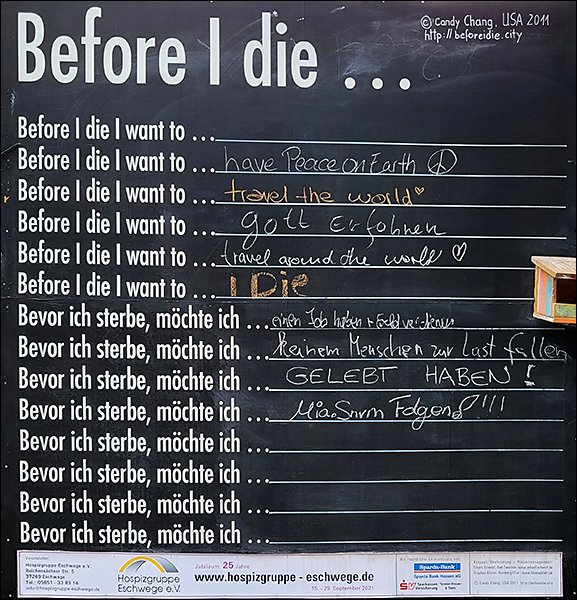 Before I die ...
© Candy Chang, USA 2011
http://beforeidie.city
Before I die I want to ...
Before I die I want to ... have Peace on Earth
Before I die I want to ... travel the world
Before I die I want to ... gott Erfahren
Before I die I want to ... travel around the world
Before I die I want to ... I Die
Bevor ich sterbe, möchte ich ... einen Job haben + Geld verdienen
Bevor ich sterbe, möchte ich ... Keinem Menschen zur Last fallen
Bevor ich sterbe, möchte ich ... GELEBT HABEN!
Bevor ich sterbe, möchte ich ... Folgen !!!
Bevor ich sterbe, möchte ich ...
Bevor ich sterbe, möchte ich ...
Bevor ich sterbe, möchte ich ...
Bevor ich sterbe, möchte ich ...
Veranstalter:
Hospizgruppe Eschwege e.V.
Reichensächser Str. 5
37269 Eschwege
Tel.: 05651 - 33 83 14
info@hospizgruppe-eschwege.de
Hospizgruppe
Eschwege e.V.
Jubiläum 25 Jahre
www.hospizgruppe - eschwege.de
15. - 29. September 2021
Sparda-Bank
Sparda-Bank Hessen eG